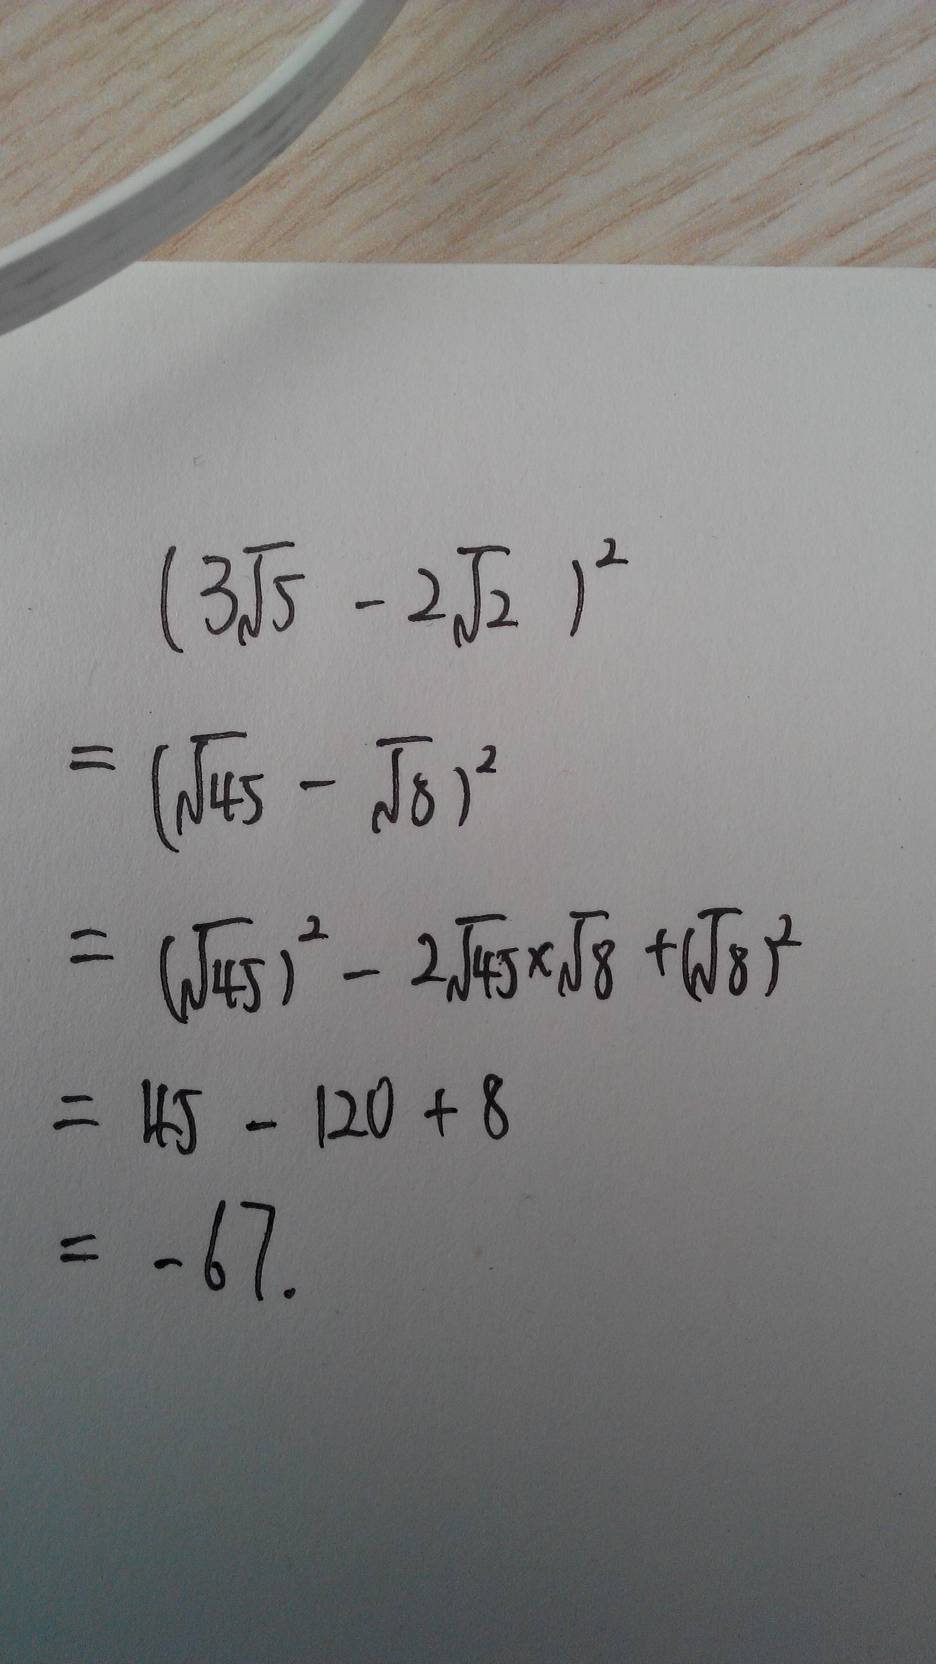 (3√5 - 2√2 )²
= (√45 - √8)²
= (√45)² - 2√45×√8 +(√8)²
= 45 - 120 + 8
= -67.